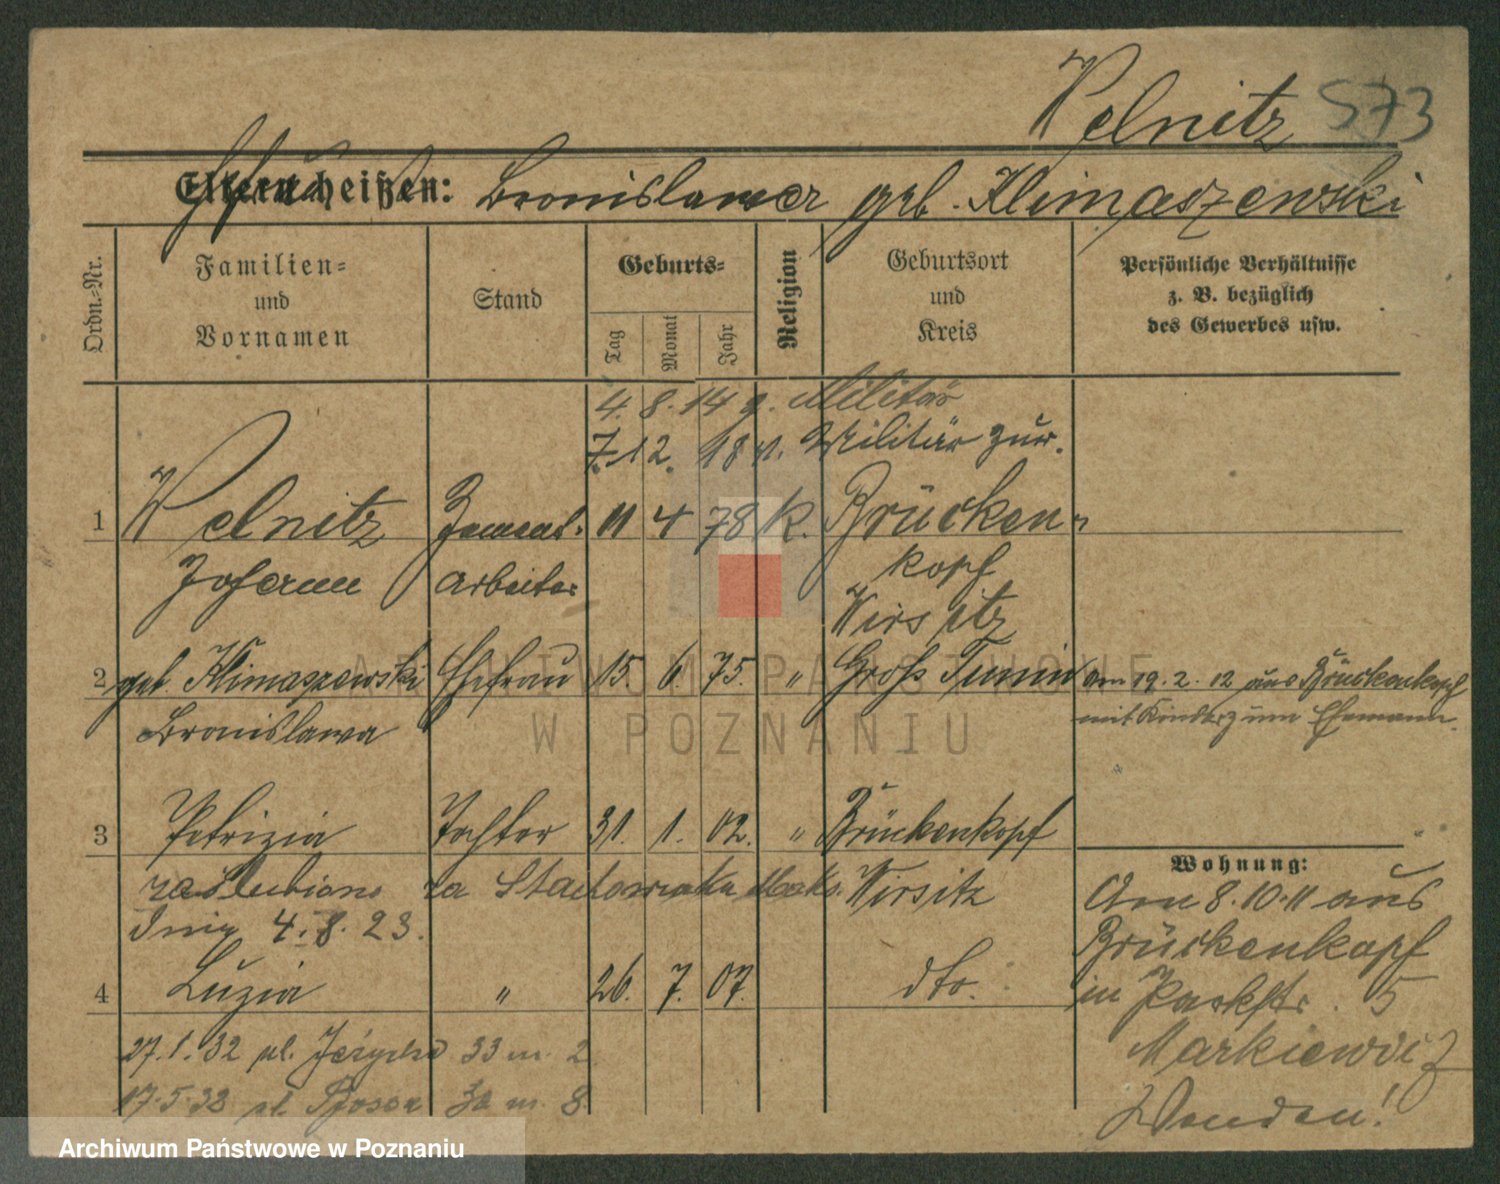 Welnitz 573
Eltern heißen: Bronislawa geb. Klimaszewski
Ordn.-Nr.
Familien-
und
Vornamen
Stand
Geburts-
Tag
Monat
Jahr
Religion
Geburtsort
und
Kreis
Persönliche Verhältnisse
z. B. bezüglich
des Gewerbes usw.
4. 8. 14 z. Militär
7. 12. 18 v. Militär zur.
1 Welnitz Zement- 11 4 78 K. Brücken-
Johann arbeiter kopf
Wirsitz
2 geb. Klimaszewski Ehefrau 15. 6. 75. " Groß Am 19. 2. 12 aus Brückenkopf
Bronislawa mit Kinder zum Ehemann.
3 Petrizia Tochter 31. 1. 02. " Brückenkopf
Wirsitz
dnia 4. 8. 23.
4 Luzia " 26. 7. 07. dto.
27. 1. 32 ul. 33 m. 2
17. 5. 32 ul. m. 8
Wohnung:
Am 8. 10. 11 aus
Brückenkopf
in Parkstr. 5
Markiewicz
Wenden!
ARCHIWUM PAŃSTWOWE
W POZNANIU
Archiwum Państwowe w Poznaniu